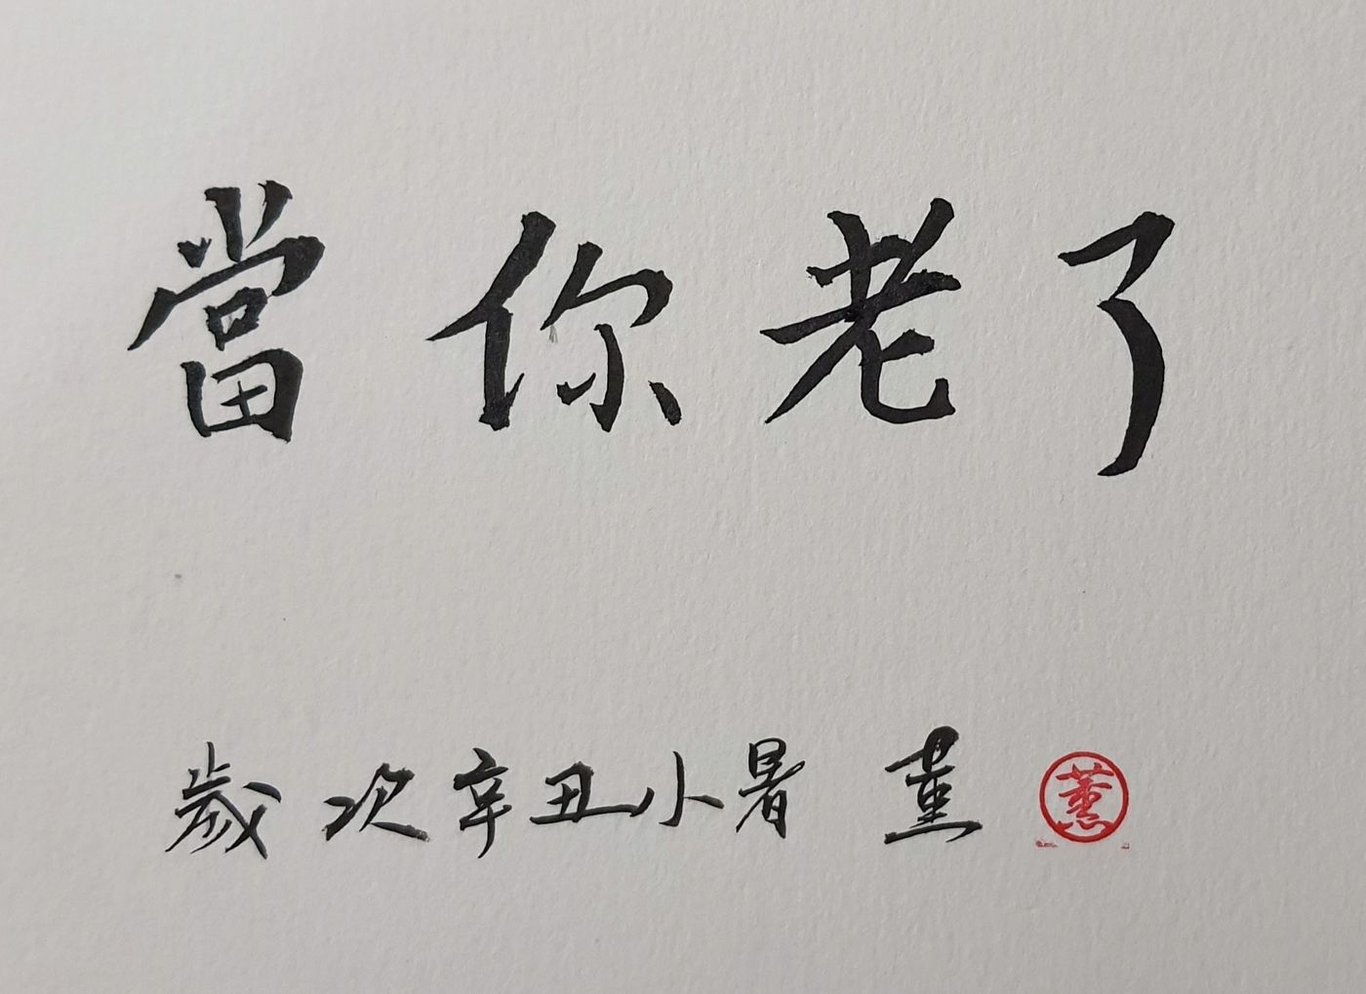 當你老了
歲次辛丑小暑 蕙 蕙